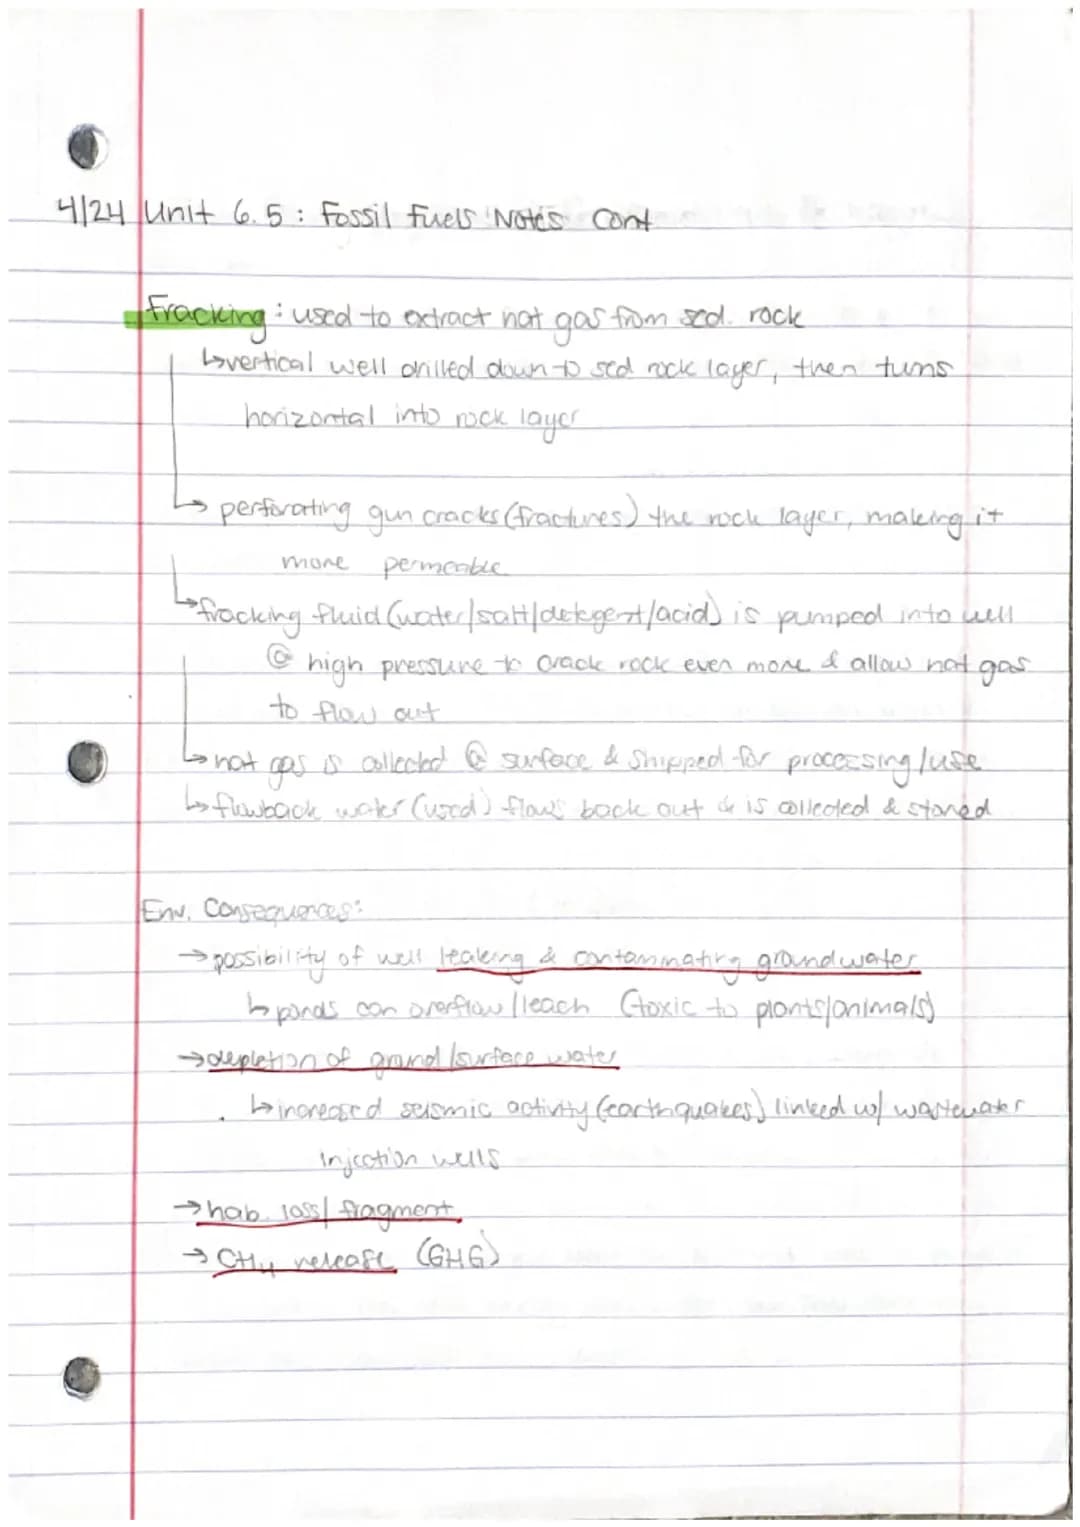 4/24 Unit 6.5: Fossil Fuels Notes Cont
Fracking: used to extract nat gas from sed. rock
↳vertical well drilled down to sed rock layer, then turns
horizontal into rock layer
↳ perforating gun cracks (fractures) the rock layer, making it
more permeable
↳fracking fluid (water/salt/detergent/acid) is pumped into well
@ high pressure to crack rock even more & allow nat gas
to flow out
↳nat gas is collected @ surface & shipped for processing/use
↳flowback water (used) flows back out & is collected & stored
Env. Consequences:
→possibility of well leaking & contaminating groundwater
↳ponds can overflow/leach (toxic to plants/animals)
→depletion of ground/surface water
↳increased seismic activity (earthquakes) linked w/ wastewater
injection wells
→hab. loss/ fragment.
→ CH4 release (GHG)